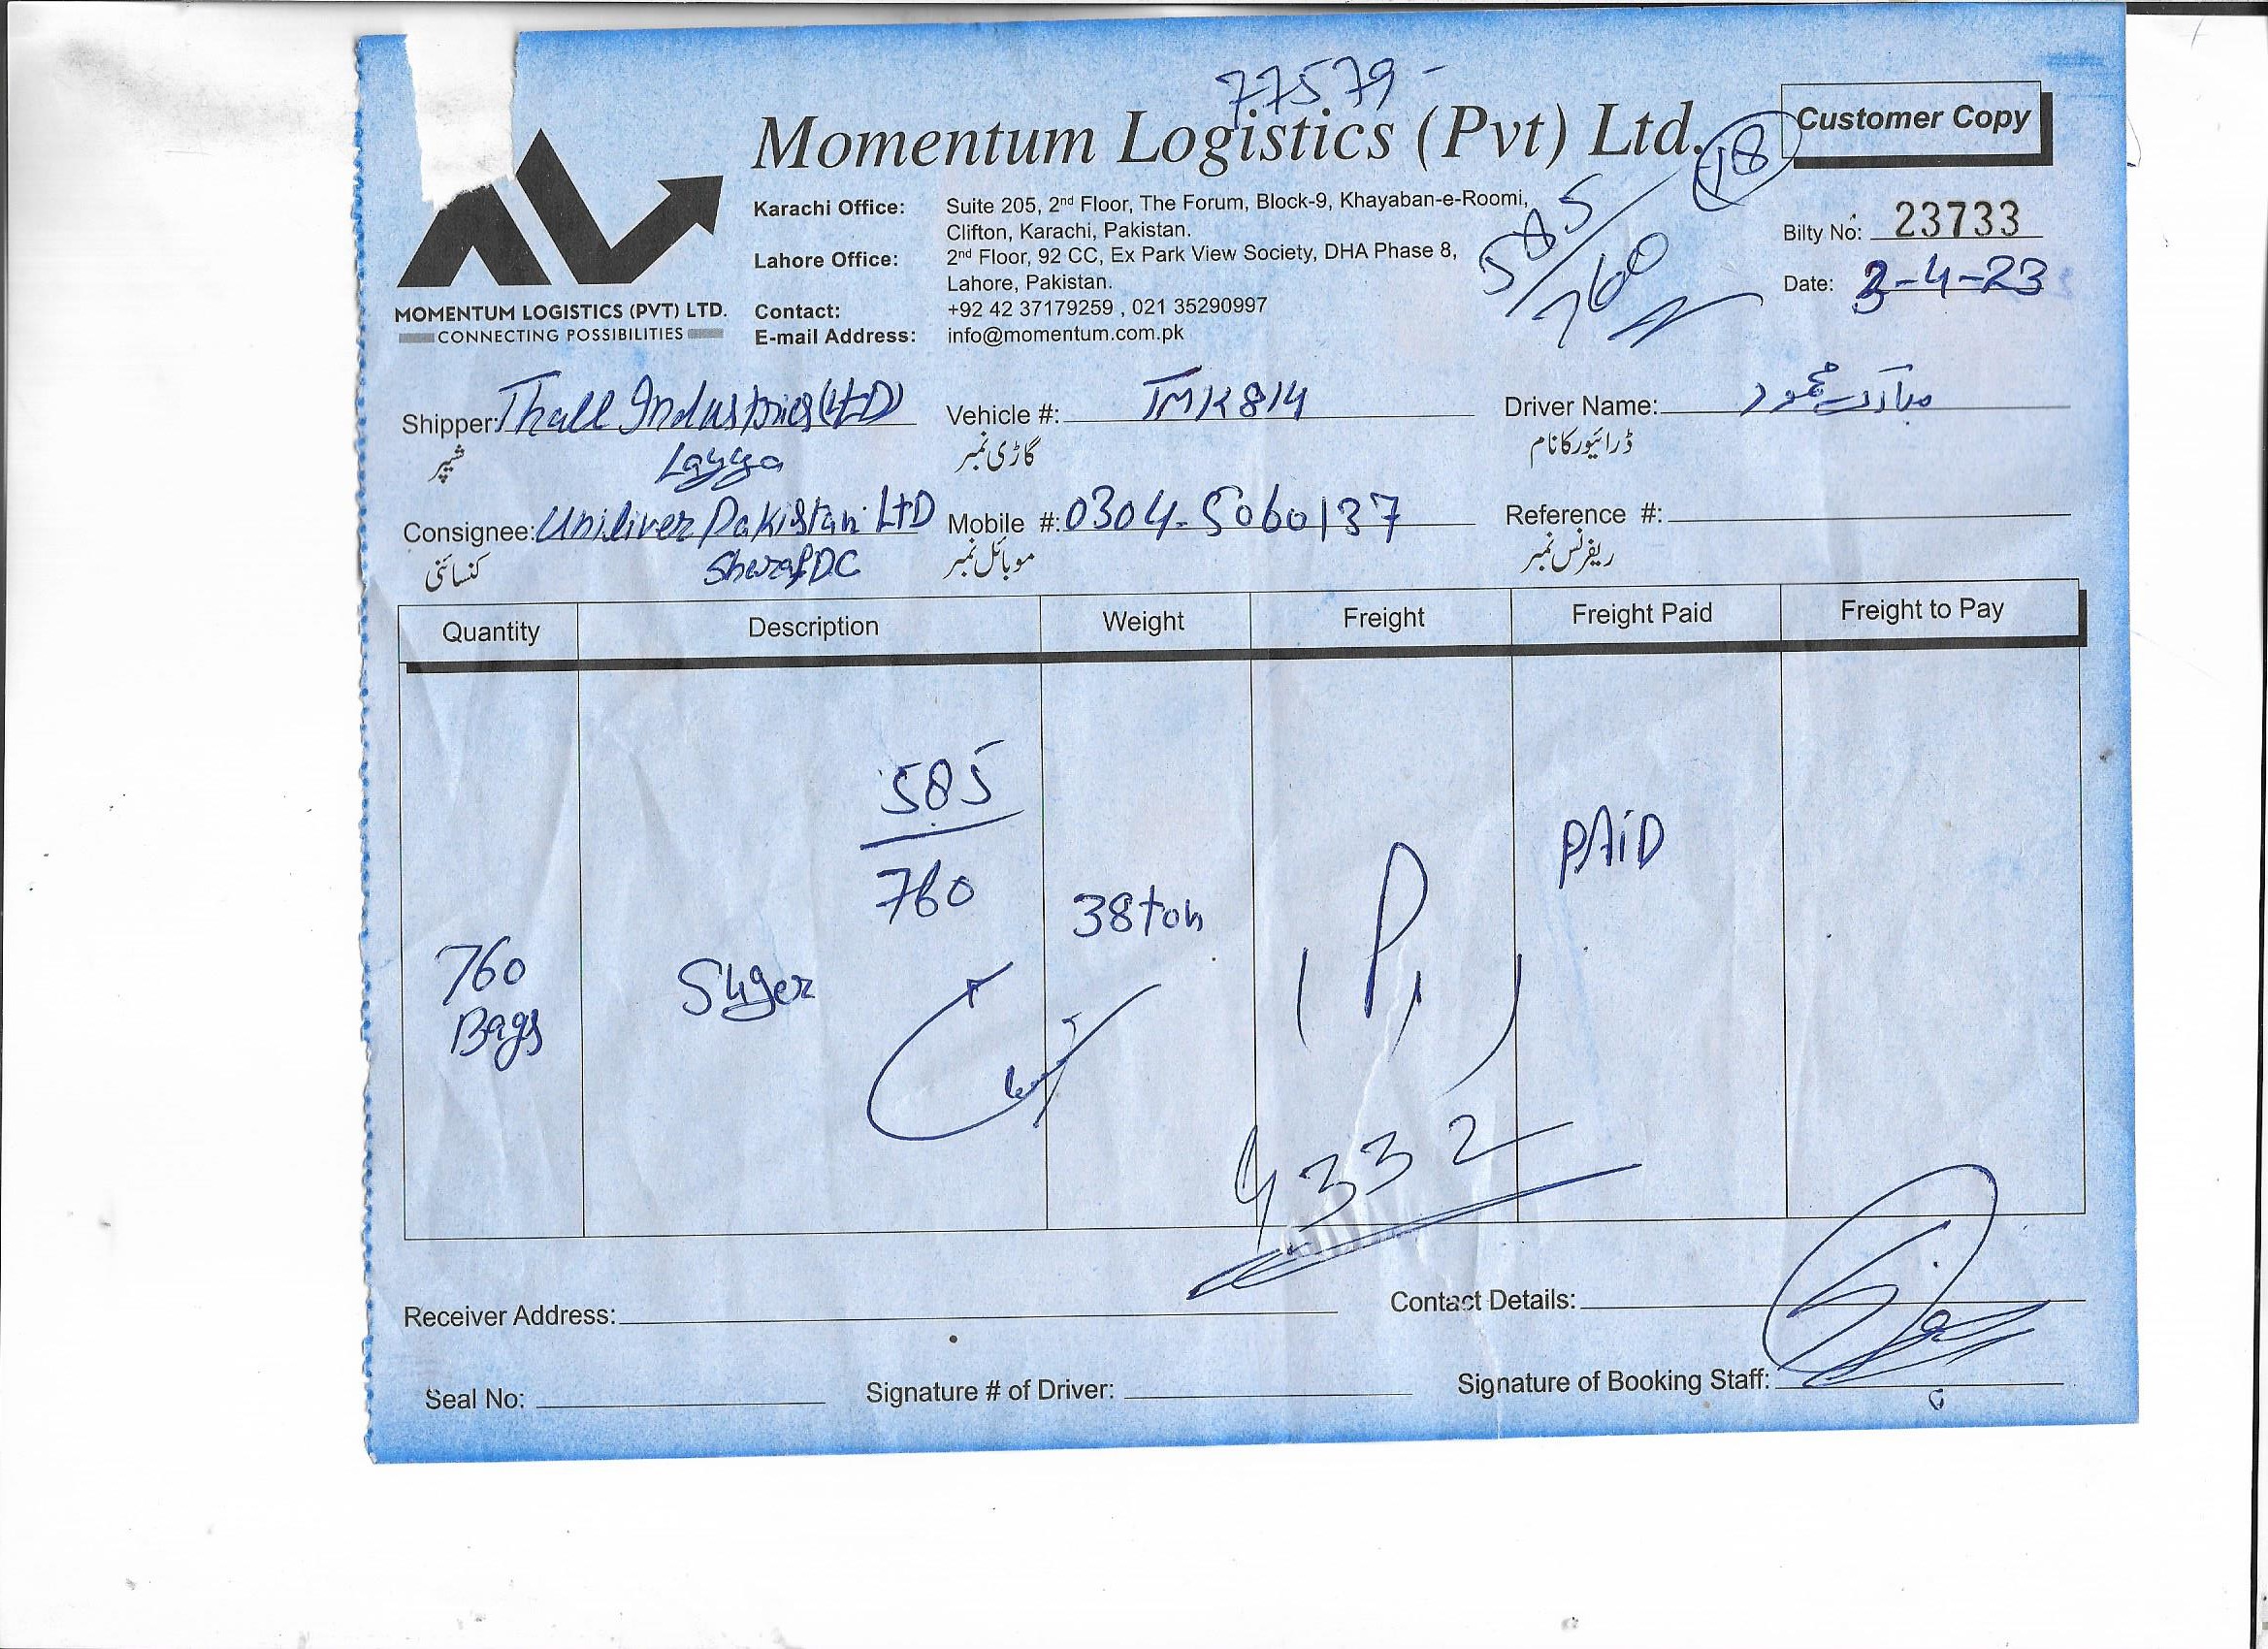 77579 -
Momentum Logistics (Pvt) Ltd.
18
Customer Copy
Karachi Office: Suite 205, 2nd Floor, The Forum, Block-9, Khayaban-e-Roomi,
Clifton, Karachi, Pakistan.
Lahore Office: 2nd Floor, 92 CC, Ex Park View Society, DHA Phase 8,
Lahore, Pakistan.
Contact: +92 42 37179259 , 021 35290997
E-mail Address: info@momentum.com.pk
585
760
Bilty No: 23733
Date: 3-4-23
MOMENTUM LOGISTICS (PVT) LTD.
CONNECTING POSSIBILITIES
Shipper: Thall Industries (LtD)
Layya
شیپر
Vehicle #: TMK814
گاڑی نمبر
Driver Name: مبارک محمود
ڈرائیور کا نام
Consignee: Uniliver Pakistan LtD
Sharaf DC
کنسائنی
Mobile #: 0304-5060137
موبائل نمبر
Reference #:
ریفرنس نمبر
Quantity Description Weight Freight Freight Paid Freight to Pay
585
760
760
Bags
Suger
38 ton
P
PAiD
4332
Receiver Address:
Contact Details:
Seal No:
Signature # of Driver:
Signature of Booking Staff: